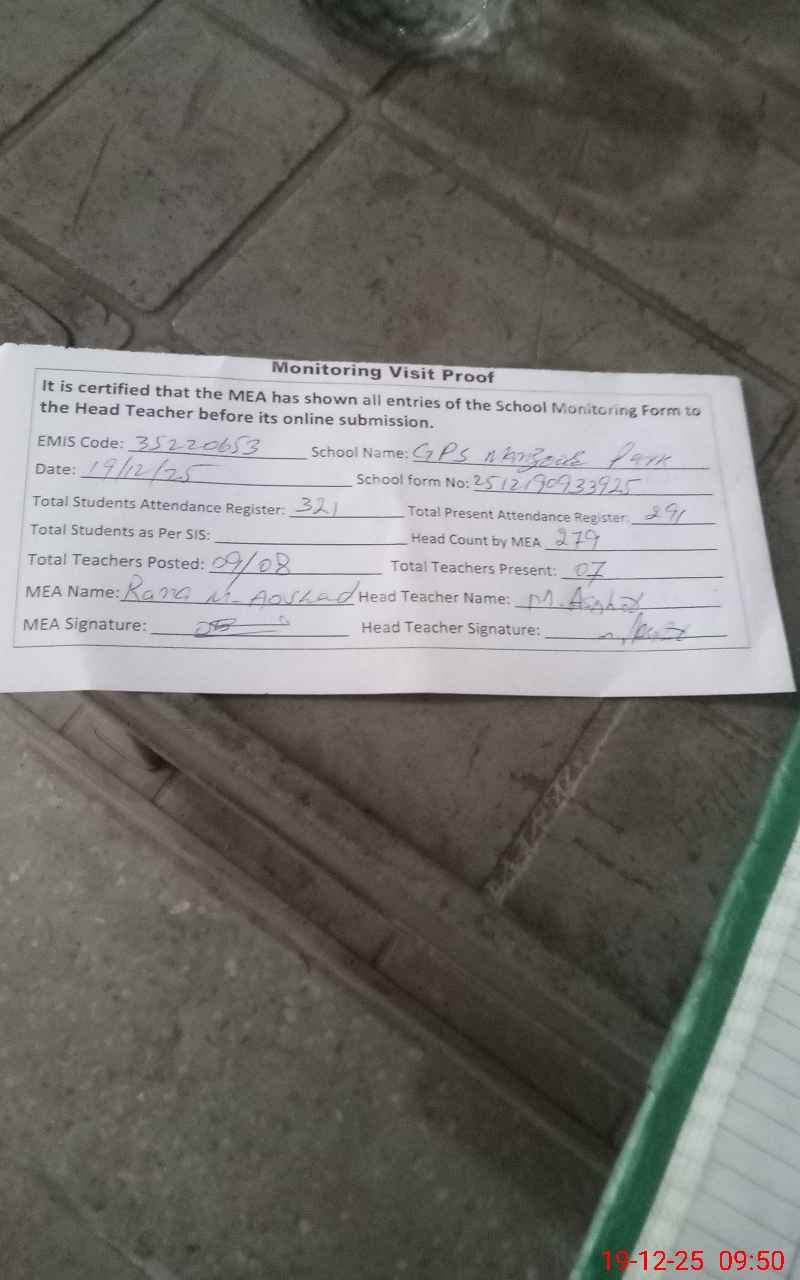 Monitoring Visit Proof
It is certified that the MEA has shown all entries of the School Monitoring Form to
the Head Teacher before its online submission.
EMIS Code: 35220653 School Name: GPS Manzoor Park
Date: 19/12/25 School form No: 2512190933925
Total Students Attendance Register: 321 Total Present Attendance Register: 291
Total Students as Per SIS: Head Count by MEA 279
Total Teachers Posted: 09/08 Total Teachers Present: 07
MEA Name: Rana M. Head Teacher Name: M.
MEA Signature: Head Teacher Signature:
19-12-25 09:50